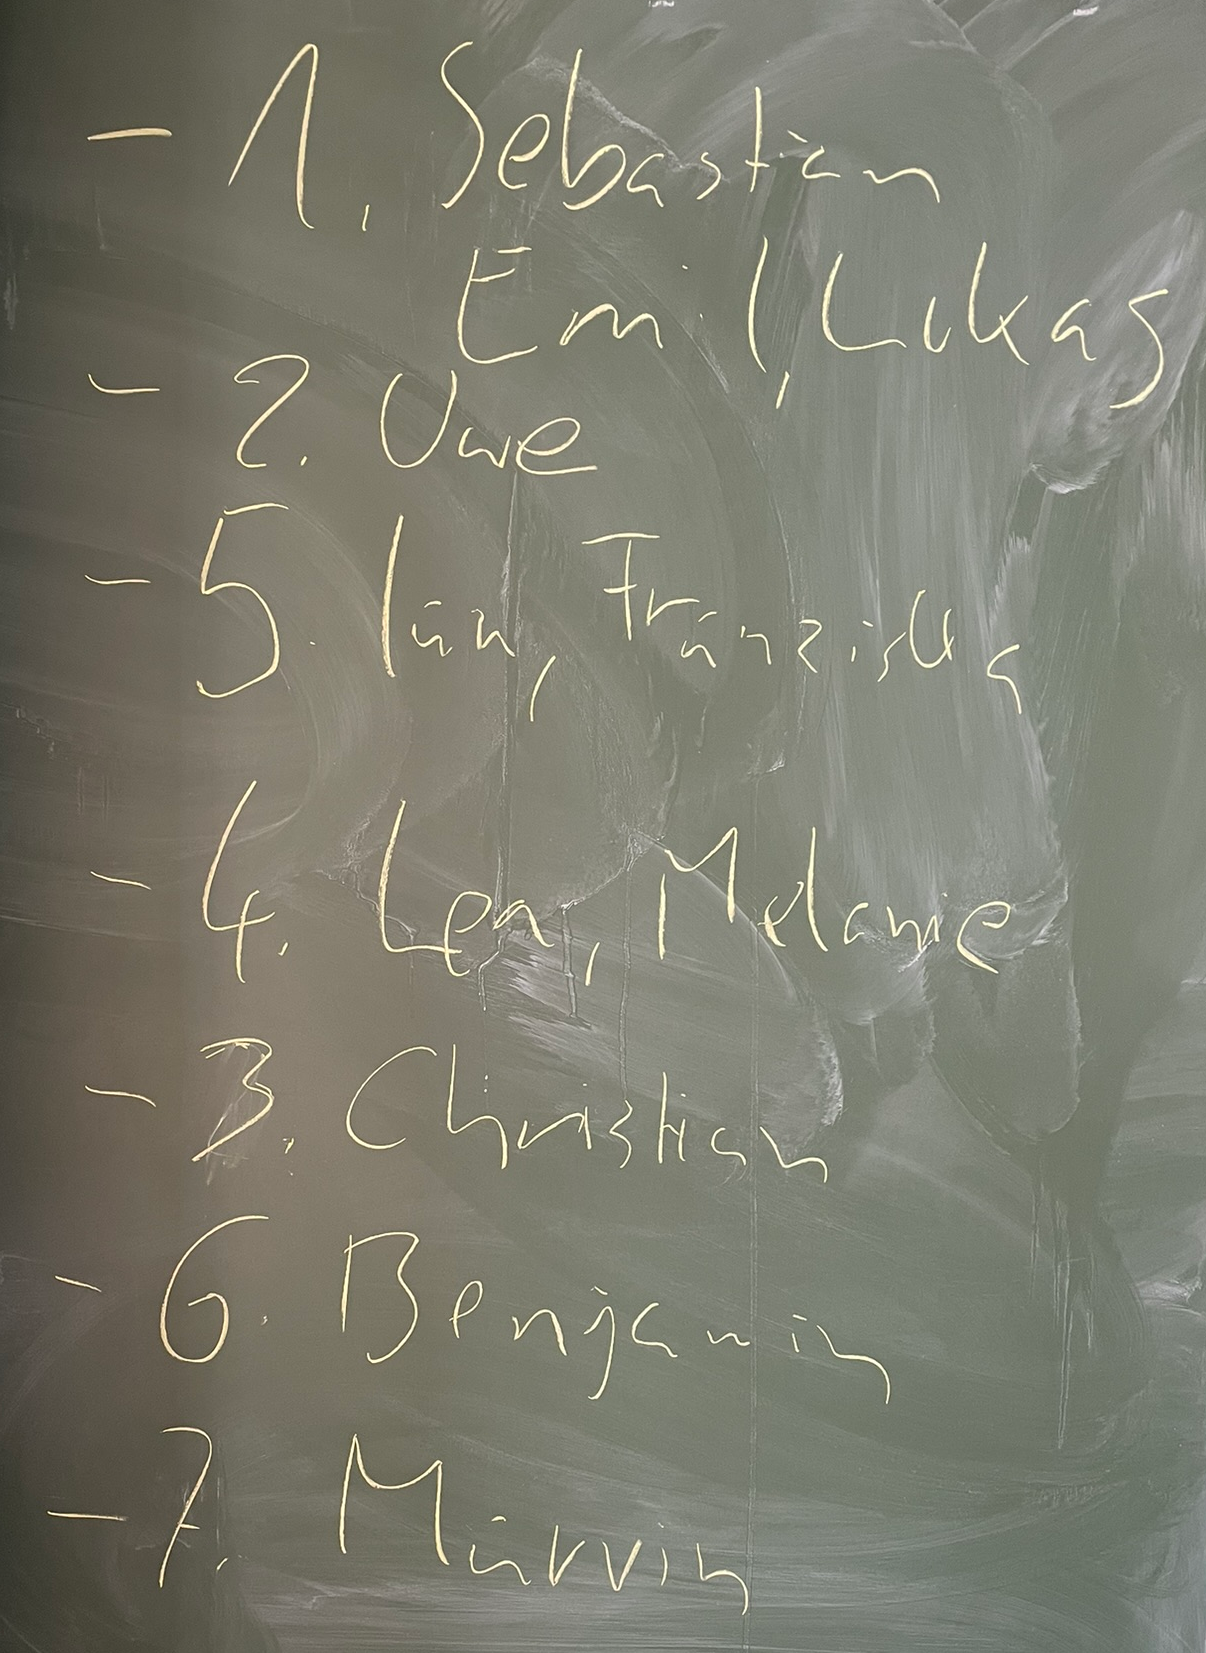 - 1. Sebastian
Emil, Lukas
- 2. Uwe
- 5. Ian, Franziska
- 4. Lea, Melanie
- 3. Christian
- 6. Benjamin
- 7. Marvin